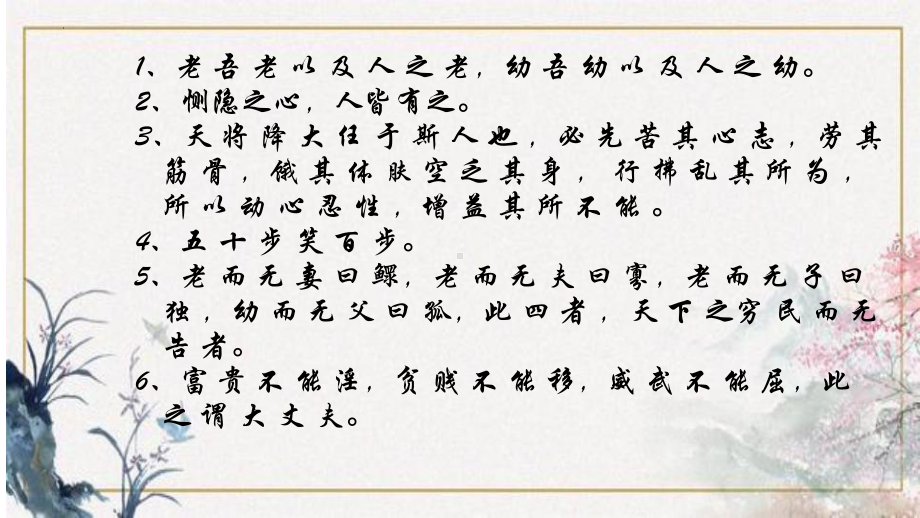 1、老吾老以及人之老，幼吾幼以及人之幼。
2、恻隐之心，人皆有之。
3、天将降大任于斯人也，必先苦其心志，劳其
筋骨，饿其体肤空乏其身，行拂乱其所为，
所以动心忍性，增益其所不能。
4、五十步笑百步。
5、老而无妻曰鳏，老而无夫曰寡，老而无子曰
独，幼而无父曰孤，此四者，天下之穷民而无
告者。
6、富贵不能淫，贫贱不能移，威武不能屈，此
之谓大丈夫。